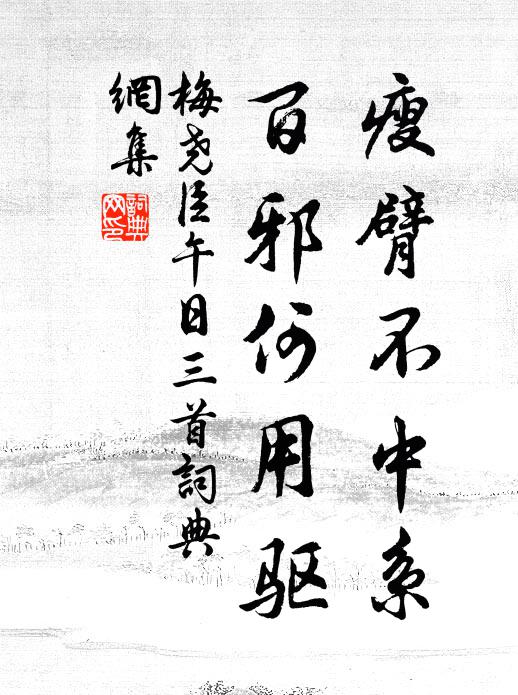 瘦臂不中系
百邪何用驱
梅尧臣午日三首詞典
網集
詞典
网印